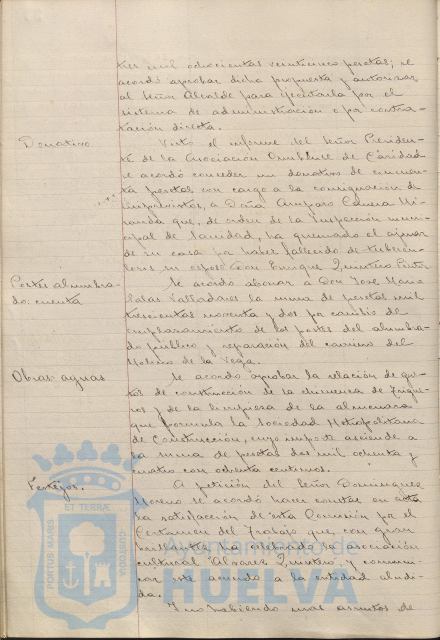 tres mil ochocientas veinticinco pesetas; se
acordó aprobar dicha propuesta y autorizar
al Señor Alcalde para ejecutarla por el
sistema de administración o por contra-
tación directa.
Donativo.
Visto el informe del Señor Presiden-
te de la Asociacion Onubense de Caridad
se acordó conceder un donativo de cincuen-
ta pesetas con cargo a la consignacion de
Imprevistos, a Doña Amparo Mi-
randa que, de orden de la Inspección muni-
cipal de Sanidad, ha quemado el ajuar
de su casa por haber fallecido de tubercu-
losis su esposo Don Enrique Quintero
Postes alumbra-
do: cuenta
Se acordó abonar a Don José Maria
Salas Valladares la suma de pesetas mil
trescientas noventa y dos por cambio de
emplazamiento de los postes del alumbra-
do público y reparación del camino del
Molino de la Vega.
Obras aguas
Se acordó aprobar la relación de gas-
tos de construcción de la chimenea de
y de la limpieza de la
que formula la Sociedad Metropolitana
de Construcción, cuyo importe asciende a
la suma de pesetas dos mil ochenta y
cuatro con ochenta centimos.
Festejos.
A petición del Señor Dominguez
Moreno se acordó hacer constar en acta
la satisfacción de esta Comisión por el
Certamen del Trabajo que, con gran
brillantez ha celebrado la asociación
cultural Alvarez Quintero, y comuni-
car este acuerdo a la entidad aludi-
da.
Y no habiendo mas asuntos de
PORTUS MARIS
ET TERRÆ
CUSTODIA
Ayuntamiento de
HUELVA